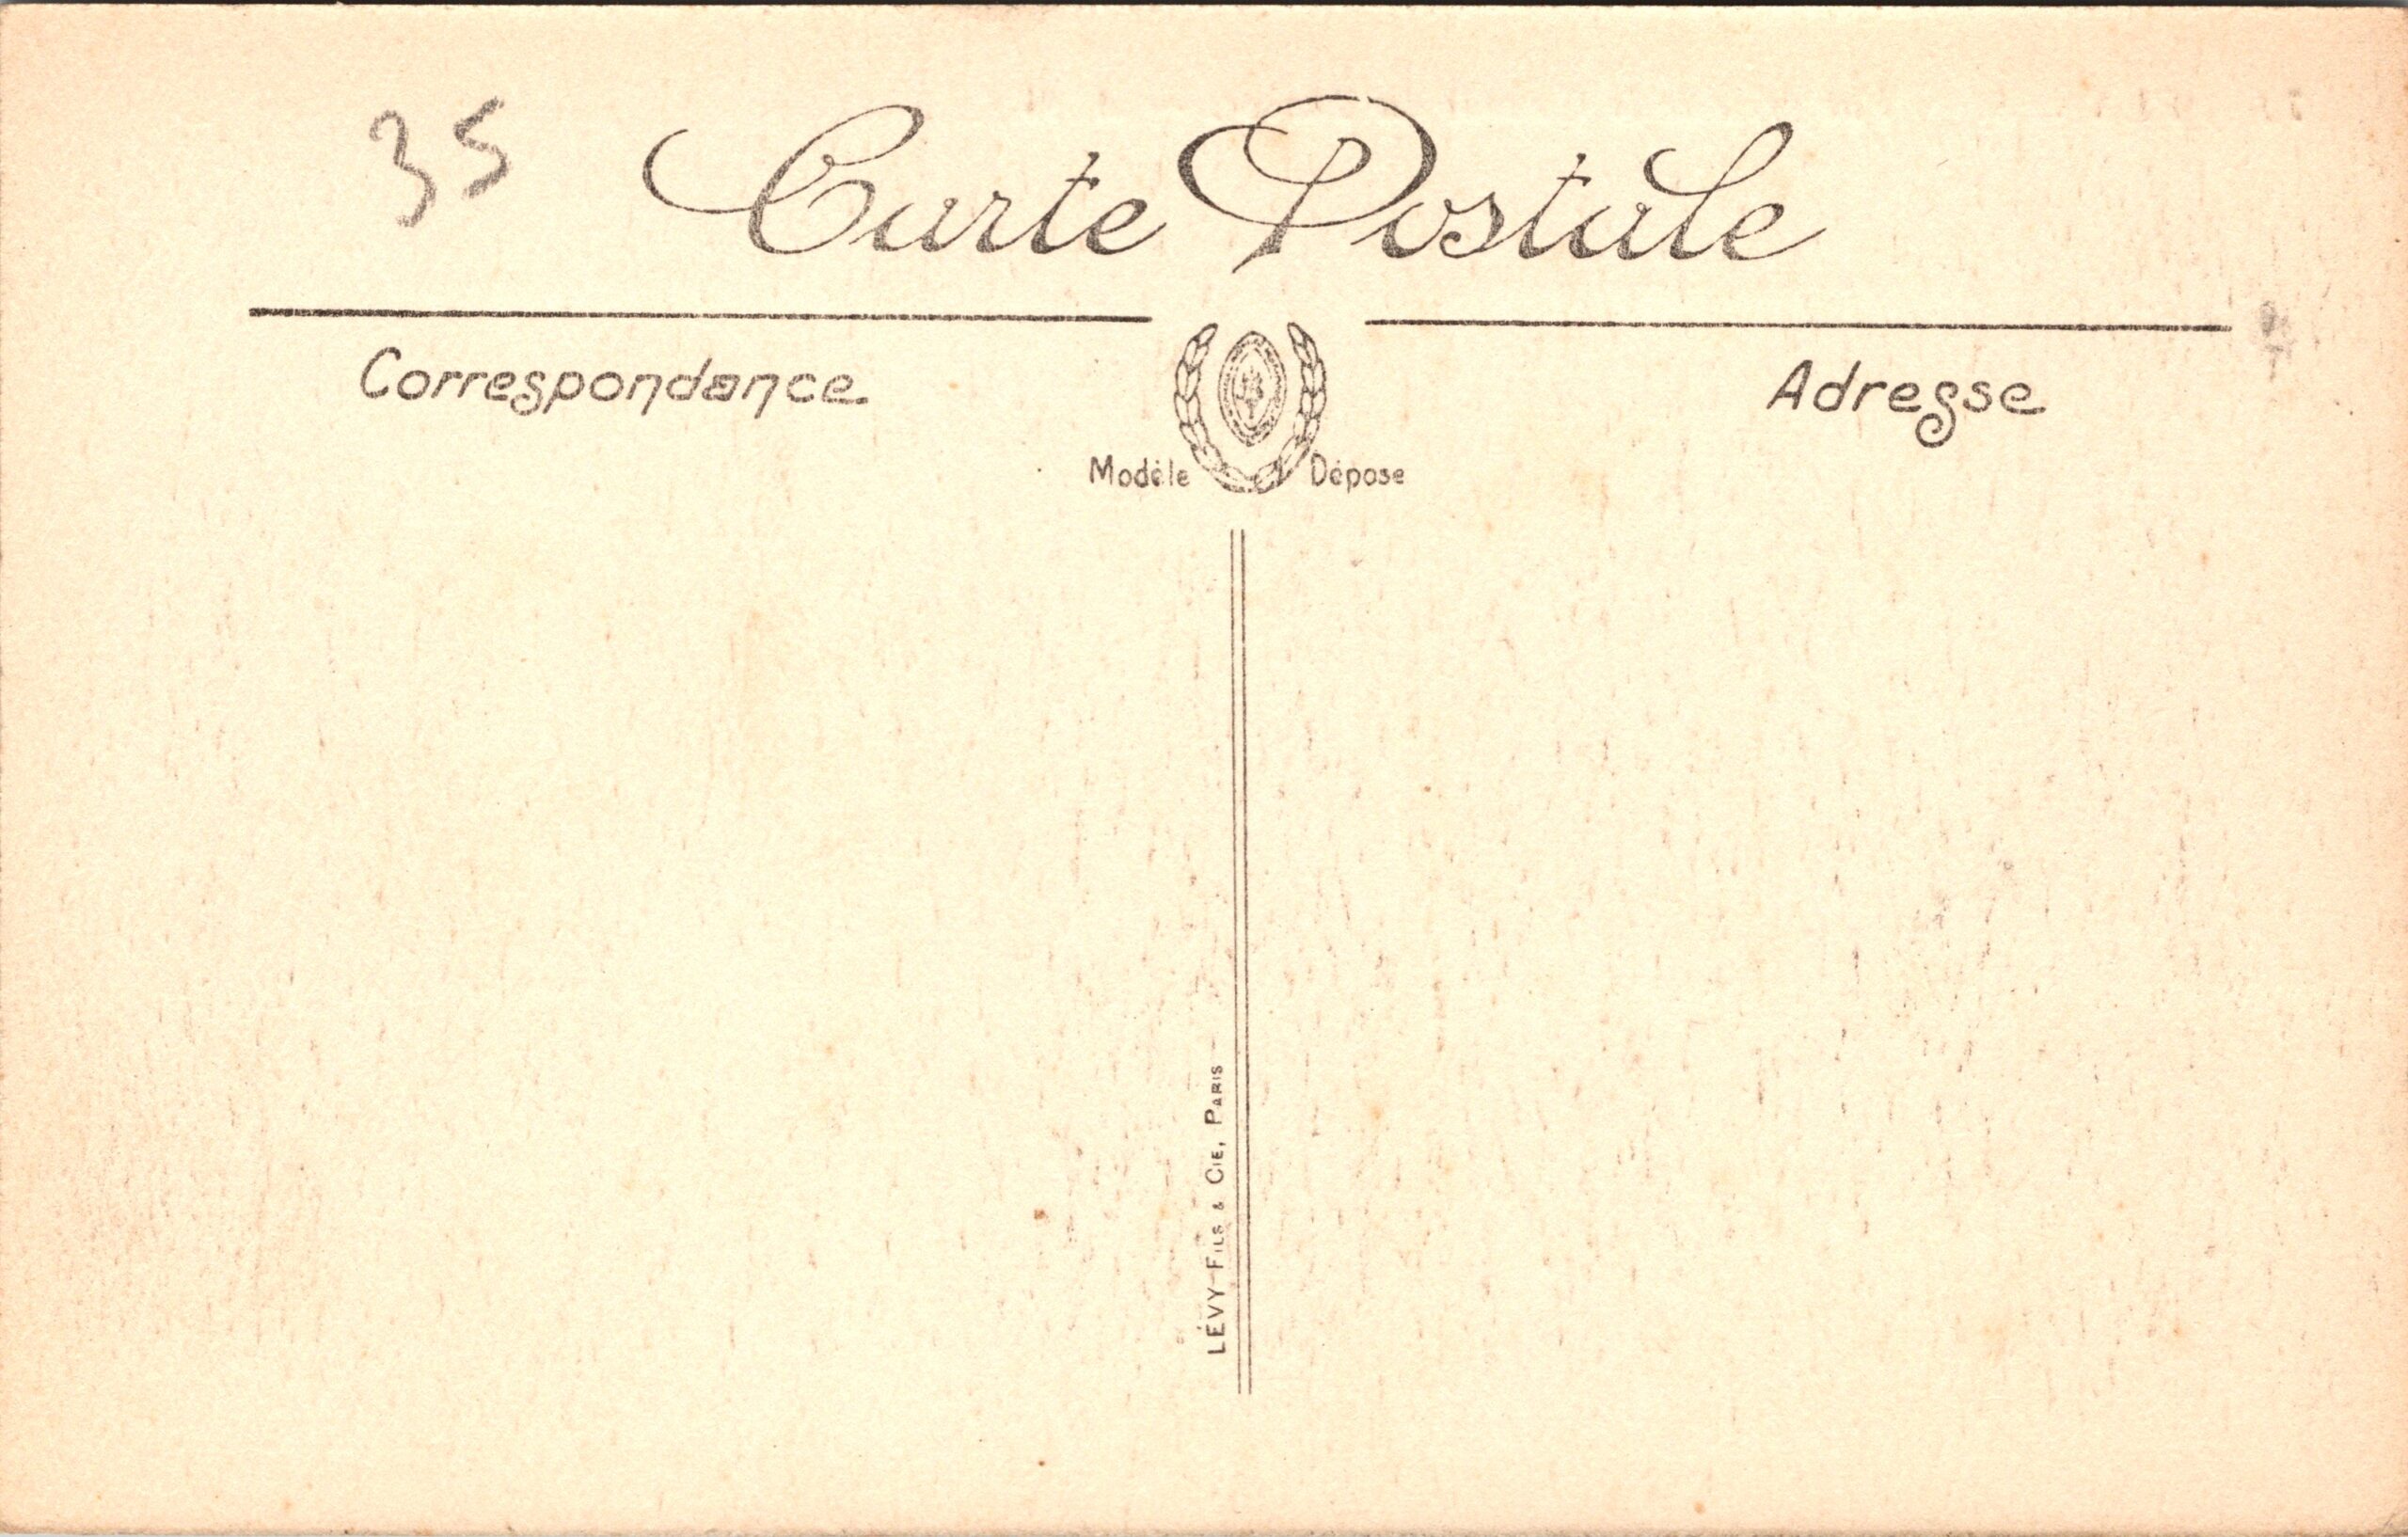 35
Carte Postale
Correspondance
Adresse
Modèle Déposé
LÉVY FILS & CIE, PARIS